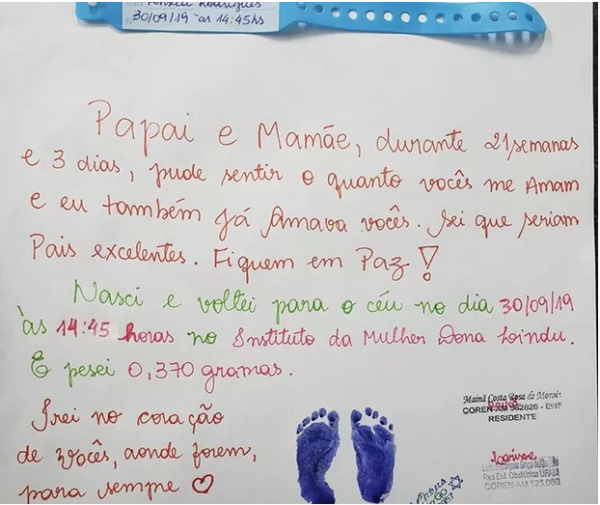 Rodrigues
30/09/19 às 14:45hs
Papai e Mamãe, durante 21 semanas
e 3 dias, pude sentir o quanto vocês me Amam
e eu também já Amava vocês. Sei que seriam
Pais excelentes. Fiquem em Paz!
Nasci e voltei para o céu no dia 30/09/19
às 14:45 horas no Instituto da Mulher Dona Lindu.
E pesei 0,370 gramas.
Irei no coração
de vocês, aonde forem,
para sempre ♡
Mainã Costa Rosa de Morais
COREN-AM
RESIDENTE
Larissa
Res Enf. Obstétrica UFAM
COREN-AM